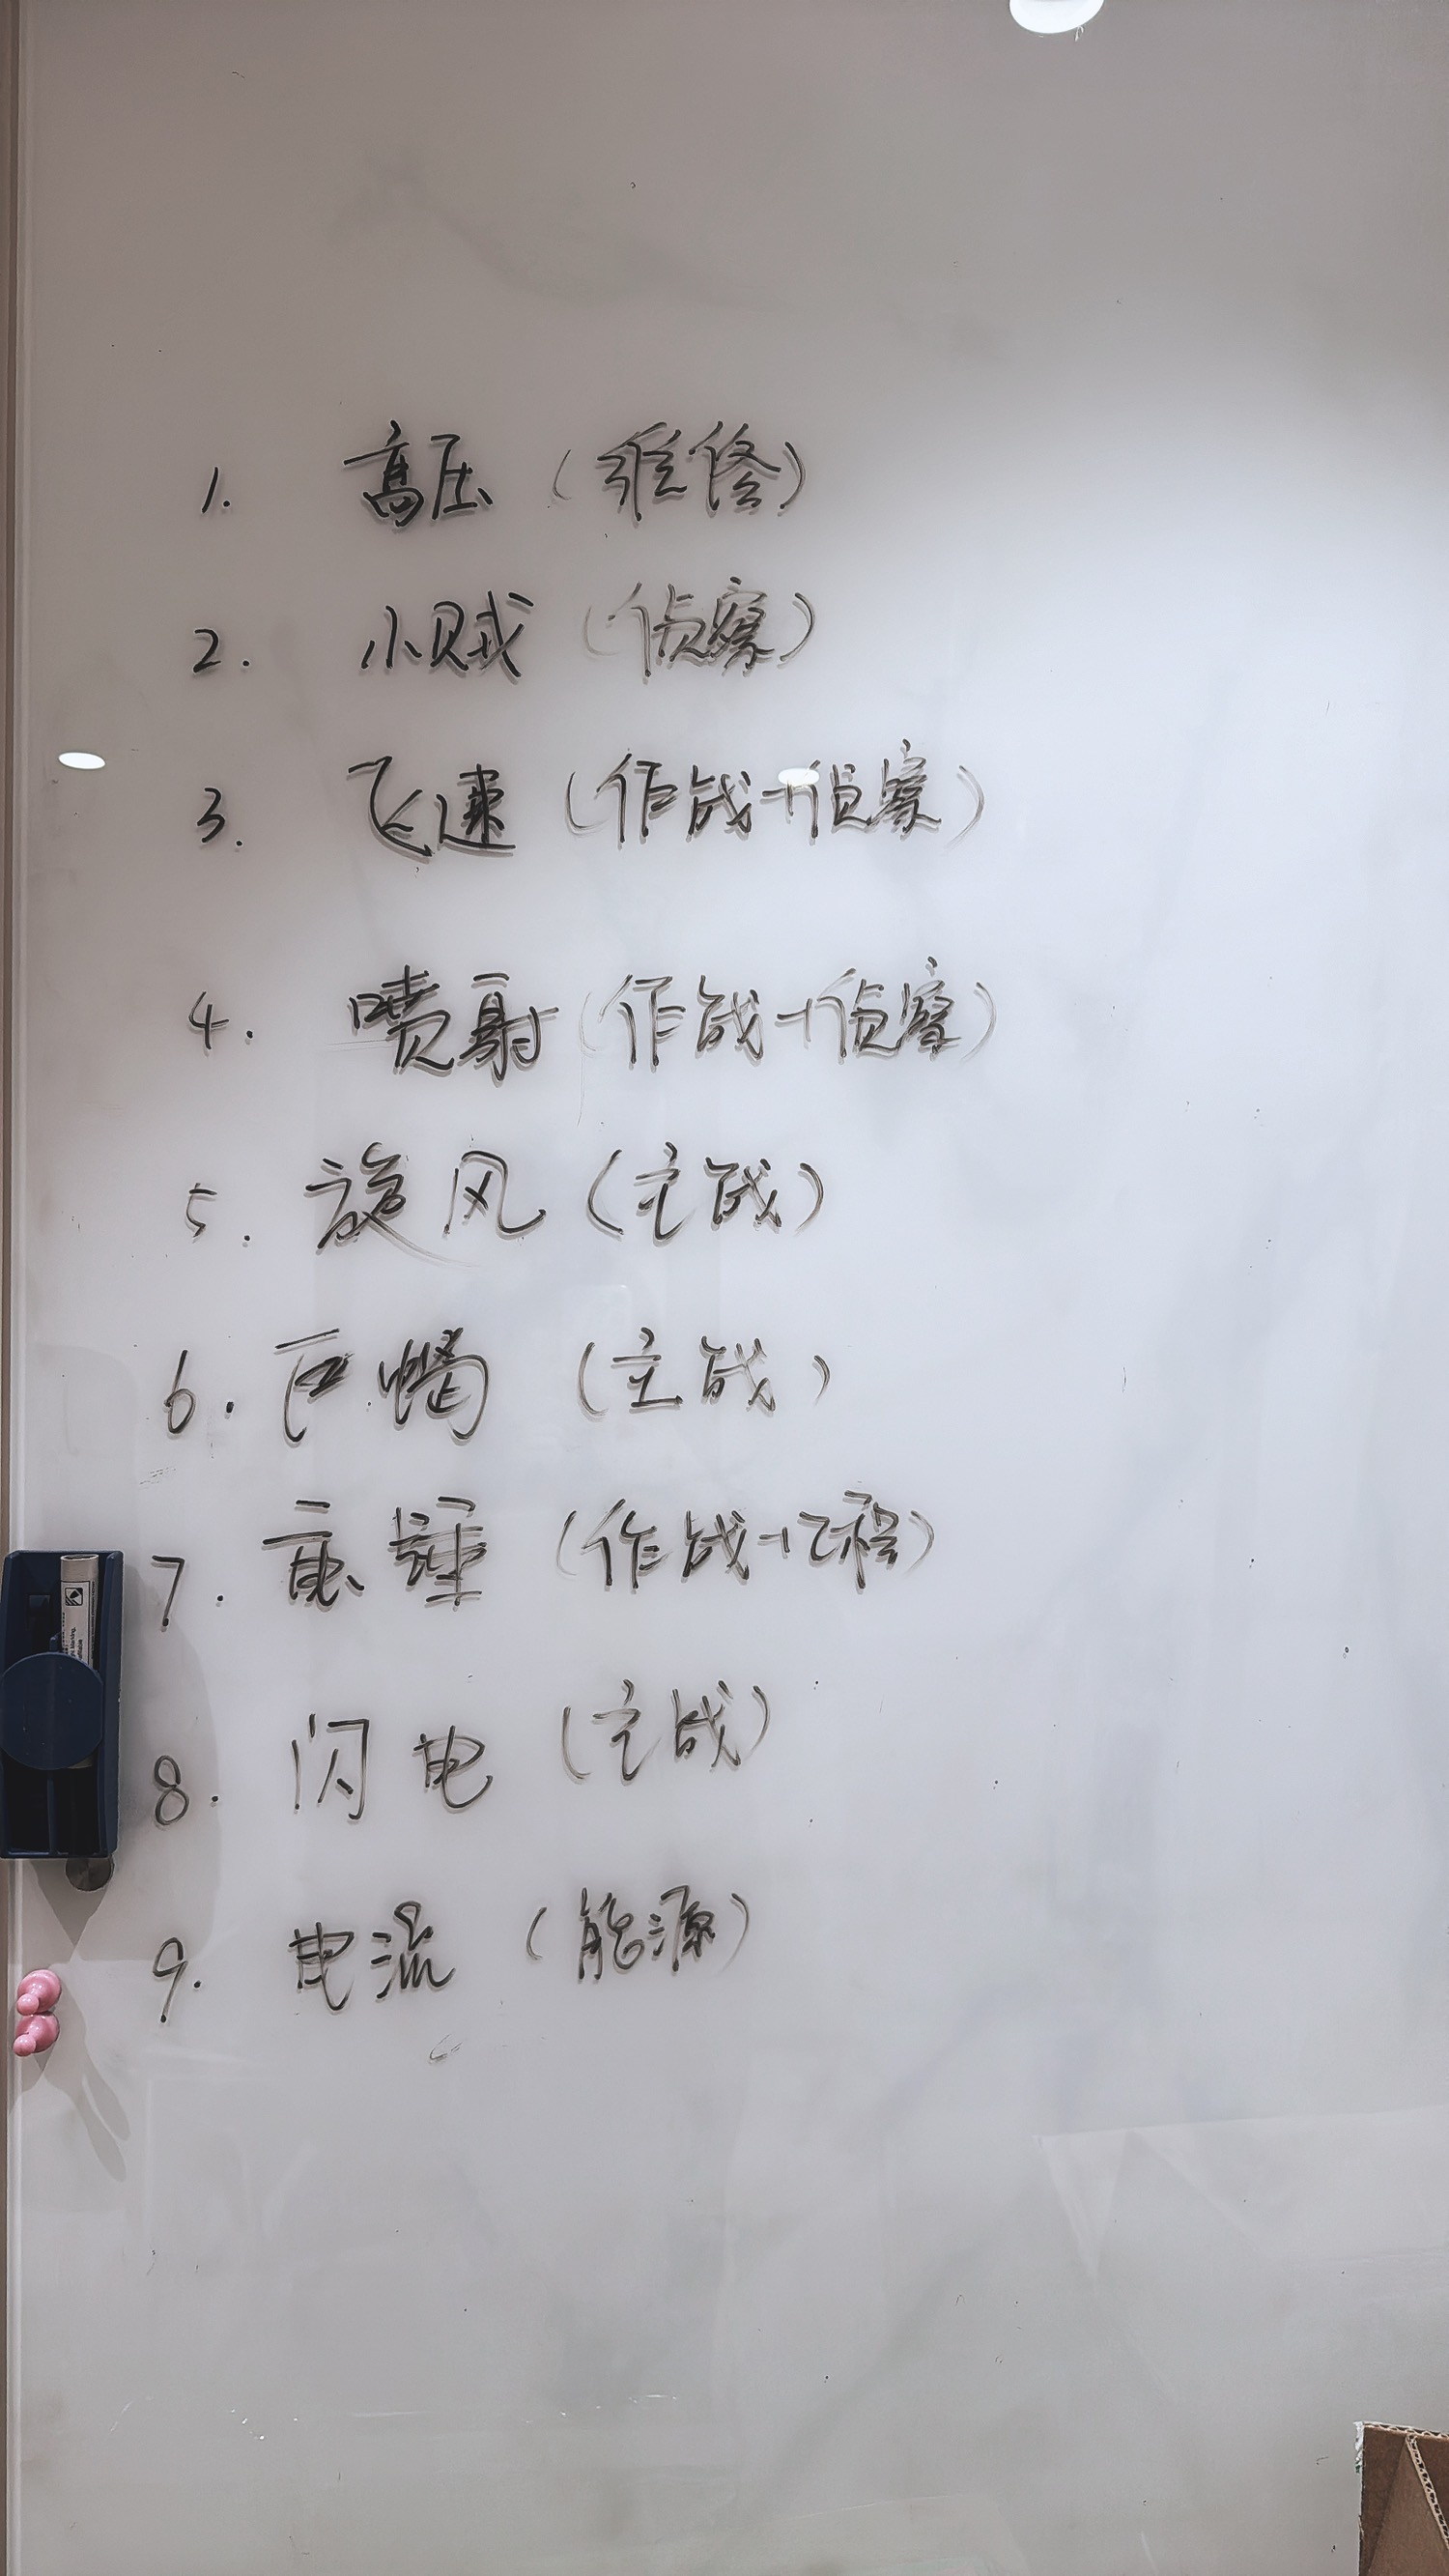 1. 高压（维修）
2. 小贼（侦察）
3. 飞速（作战+侦察）
4. 喷射（作战+侦察）
5. 旋风（主战）
6. （主战）
7. （作战+工程）
8. 闪电（主战）
9. 电流（能源）